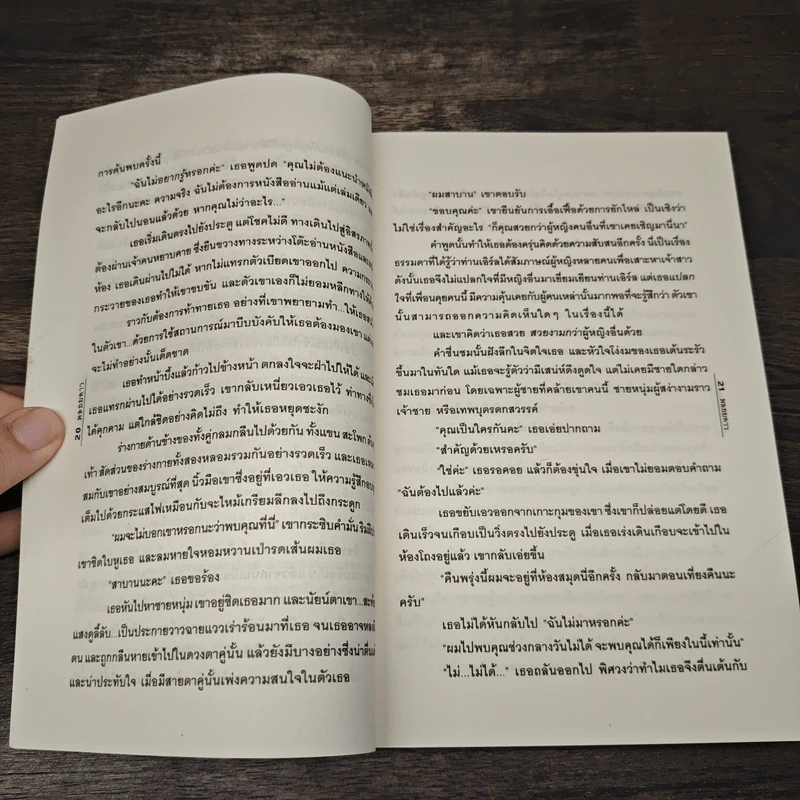 การค้นพบครั้งนี้
“ฉันไม่อยากรู้หรอกค่ะ” เธอพูดปด “คุณไม่ต้องแนะนำ
อะไรอีกนะคะ ความจริง ฉันไม่ต้องการหนังสืออ่านแม้แต่เล่มเดียว
จะกลับไปนอนแล้วด้วย หากคุณไม่ว่าอะไร...”
เธอเริ่มเดินตรงไปยังประตู แต่โชคไม่ดี ทางเดินไปสู่อิสรภาพ
ต้องผ่านเจ้าคนหยาบคาย ซึ่งยืนขวางทางระหว่างโต๊ะอ่านหนังสือและ
ห้อง เธอเดินผ่านไปไม่ได้ หากไม่แทรกตัวเบียดเขาออกไป ความ
กระวายของเธอทำให้เขาขบขัน และตัวเขาเองก็ไม่ยอมหลีกทางให้
ราวกับต้องการท้าทายเธอ อย่างที่เขาพยายามทำ...ให้เธอ
ในตัวเขา...ด้วยการใช้สถานการณ์มาบีบบังคับให้เธอต้องมองเขา
จะไม่ทำอย่างนั้นเด็ดขาด
เธอทำหน้าบึ้งแล้วก้าวไปข้างหน้า ตกลงใจจะฝ่าไปให้ได้
เธอแทรกผ่านไปได้อย่างรวดเร็ว เขากลับเหนี่ยวเอวเธอไว้ ท่าทาง
ได้คุกคาม แต่ใกล้ชิดอย่างคิดไม่ถึง ทำให้เธอหยุดชะงัก
ร่างกายด้านข้างของทั้งคู่กลมกลืนไปด้วยกัน ทั้งแขน สะโพก
เท้า สัดส่วนของร่างกายทั้งสองหลอมรวมกันอย่างรวดเร็ว และ
สมกับเขาอย่างสมบูรณ์ที่สุด นิ้วมือเขาซึ่งอยู่ที่เอวเธอ ให้ความรู้สึก
เต็มไปด้วยกระแสไฟเหมือนกับจะไหม้เกรียมลึกลงไปถึงกระดูก
“ผมจะไม่บอกเขาหรอกนะว่าพบคุณที่นี่” เขากระซิบคำมั่น
เขาชิดใบหูเธอ และลมหายใจหอมหวานเป่ารดเส้นผมเธอ
“สาบานนะคะ” เธอขอร้อง
เธอหันไปหาชายหนุ่ม เขาอยู่ชิดเธอมาก และนัยน์ตาเขา...
แสงดูลี้ลับ...เป็นประกายวาวฉายแววเร่าร้อนมาที่เธอ จนเธออาจ
ตน และถูกกลืนหายเข้าไปในดวงตาคู่นั้น แล้วยังมีบางอย่างซึ่ง
และน่าประทับใจ เมื่อมีสายตาคู่นั้นเพ่งความสนใจในตัวเธอ
20 พลอยดาว
“ผมสาบาน” เขาตอบรับ
“ขอบคุณค่ะ” เขายืนยันการเอื้อเฟื้อด้วยการยักไหล่ เป็นเชิงว่า
ไม่ใช่เรื่องสำคัญอะไร “ก็คุณสวยกว่าผู้หญิงคนอื่นที่เขาเคยเชิญมานี่นา”
คำพูดนั้นทำให้เธอต้องครุ่นคิดด้วยความสับสนอีกครั้ง นี่เป็นเรื่อง
ธรรมดาที่ได้รู้ว่าท่านเอิร์ลได้สัมภาษณ์ผู้หญิงหลายคนเพื่อเสาะหาเจ้าสาว
ดังนั้นเธอจึงไม่แปลกใจที่มีหญิงอื่นมาเยี่ยมเยียนท่านเอิร์ล แต่เธอแปลก
ใจที่เพื่อนคุยคนนี้ มีความคุ้นเคยกับผู้คนเหล่านั้นมากพอที่จะรู้สึกว่า ตัวเขา
นั้นสามารถออกความคิดเห็นใดๆ ในเรื่องนี้ได้
และเขาคิดว่าเธอสวย สวยงามกว่าผู้หญิงอื่นด้วย
คำชื่นชมนั้นฝังลึกในจิตใจเธอ และหัวใจโง่งมของเธอเต้นระรัว
ขึ้นมาในทันใด แม้เธอจะรู้ตัวว่ามีเสน่ห์ดึงดูดใจ แต่ไม่เคยมีชายใดกล่าว
ชมเธอมาก่อน โดยเฉพาะผู้ชายที่คล้ายเขาคนนี้ ชายหนุ่มผู้สง่างามราว
เจ้าชาย หรือเทพบุตรตกสวรรค์
“คุณเป็นใครกันคะ” เธอเอ่ยปากถาม
“สำคัญด้วยเหรอครับ”
“ใช่ค่ะ” เธอรอคอย แล้วก็ต้องขุ่นใจ เมื่อเขาไม่ยอมตอบคำถาม
“ฉันต้องไปแล้วค่ะ”
เธอขยับเอวออกจากเกาะกุมของเขา ซึ่งเขาก็ปล่อยแต่โดยดี เธอ
เดินเร็วจนเกือบเป็นวิ่งตรงไปยังประตู เมื่อเธอเร่งเดินเกือบจะเข้าไปใน
ห้องโถงอยู่แล้ว เขากลับเอ่ยขึ้น
“คืนพรุ่งนี้ผมจะอยู่ที่ห้องสมุดนี่อีกครั้ง กลับมาตอนเที่ยงคืนนะ
ครับ”
เธอไม่ได้หันกลับไป “ฉันไม่มาหรอกค่ะ”
“ผมไปพบคุณช่วงกลางวันไม่ได้ จะพบคุณได้ก็เพียงในนี้เท่านั้น”
“ไม่...ไม่ได้...” เธอถลันออกไป พิศวงว่าทำไมเธอจึงตื่นเต้นกับ
21 พลอยดาว